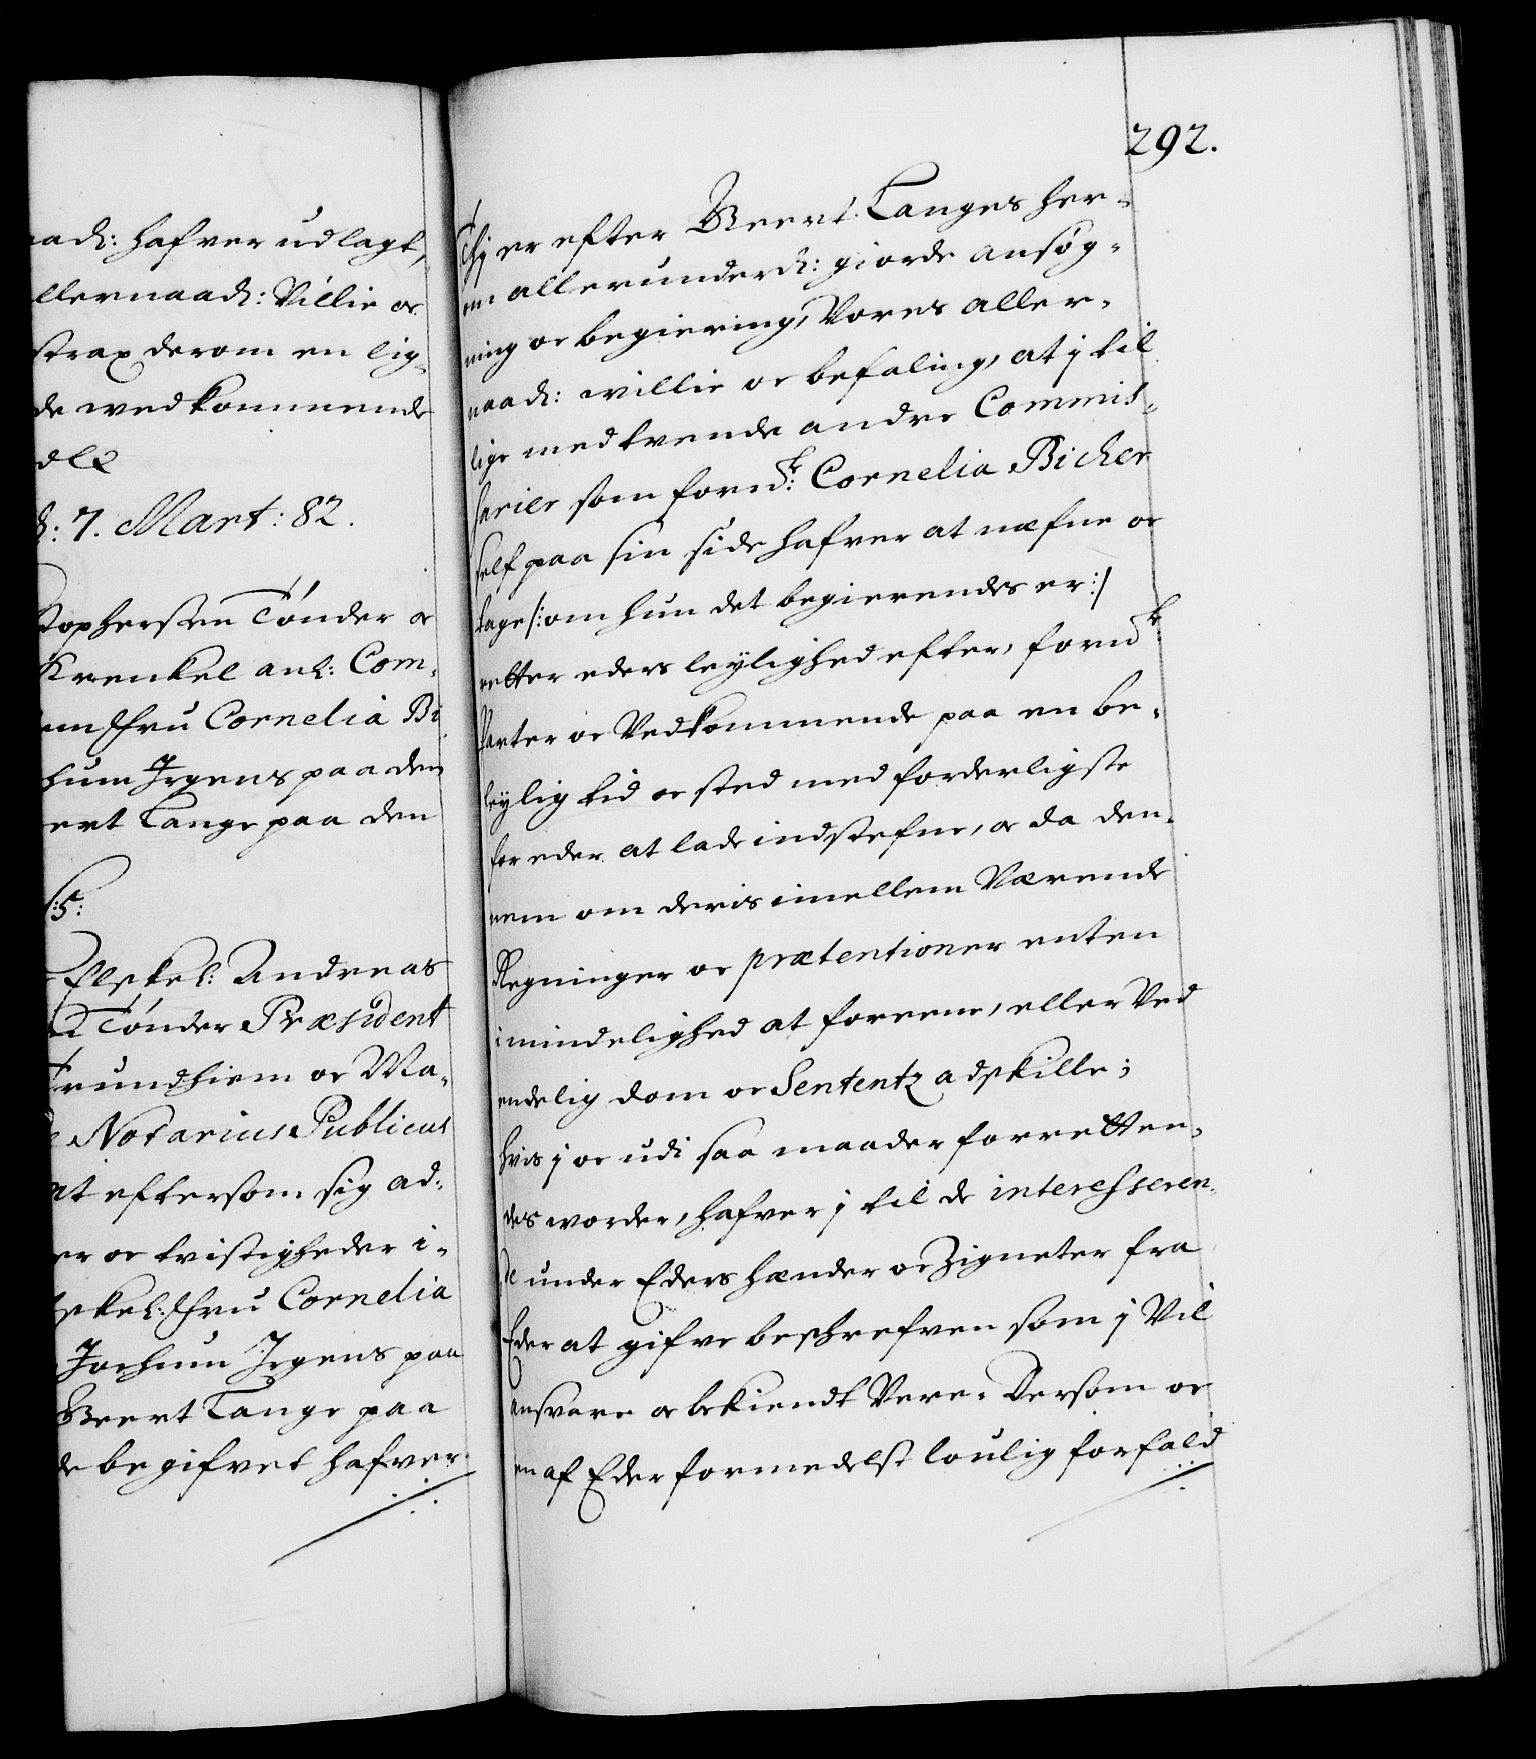 aad: hafver udlagt,
llernaad: Villie oc
strax derom en lig-
de wedkommende
d: 7. Mart: 82.
tophersen Tønder oc
Krenkel anl: Com-
em fru Cornelia Bi
hum Jrgens paa den
ert Lange paa den
Elskel: Andreas
Tønder Præsident
Trundhiem oc Ma-
Notarius Publicus
at eftersom sig ad-
er oc tvistigheder i-
skel: fru Cornelia
Jochum Jrgens paa
Beert Lange paa
de begifvet hafver
292.
Thj er efter Beert Langes her-
om allerunderd: giorde ansøg-
ning oc begiering, Vores aller-
naad: willie oc befaling, at j til
lige med tvende andre Commis-
sarier som fornd: Cornelia Bicker
self paa sin side hafver at næfne oc
tage /: om hun det begierendes er :/
retter eders leylighed efter, fornd:
Parter oc Vedkommende paa en be-
leylig tid oc sted med forderligste
for eder at lade indstefne, oc da den-
nem om deris imellem Værende
Regninger oc prætentioner enten
i mindelighed at foreene, eller Ved
endelig dom oc Sententz adskille;
hvis j oc udi saa maader forretten-
des worder, hafver j til de interesseren-
de under Eders hænder oc Zigneter fra
Eder at gifve beschrefven som j Vil
ansvare oc bekiendt Vere. Dersom oc
en af Eder formedelst loulig forfald